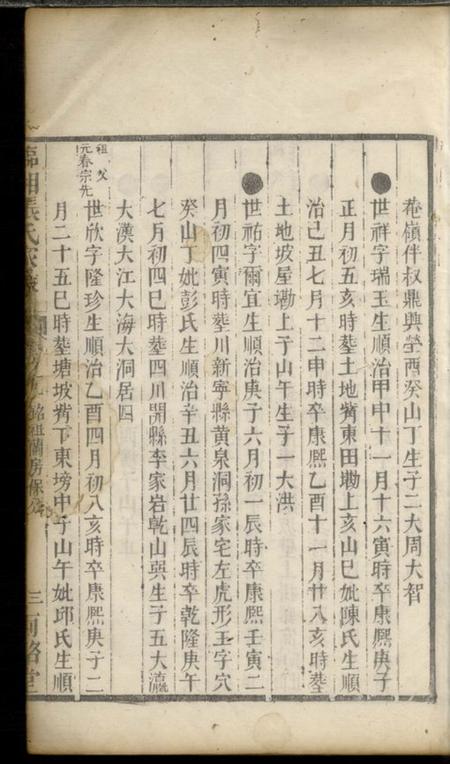 菴嶺伴叔鼎興塋酉癸山丁生子二大周大智
世祥字瑞玉生順治甲申十一月十六寅時卒康熙庚子
正月初五亥時塟土地背東田墈上亥山巳妣陳氏生順
治己丑七月十二申時卒康熙乙酉十一月廿八亥時塟
土地坡屋墈上子山午生子一大洪
世祐字爾宜生順治庚子六月初一辰時卒康熙壬寅二
月初四寅時塟川新寧縣黃泉洞孫家宅左虎形王字穴
癸山丁妣彭氏生順治辛丑六月廿四辰時卒乾隆庚午
七月初四巳時塟四川開縣李家岩乾山巽生子五大瀛
大漢大江大海大洞居四
祖父
元春宗先
世欣字隆珍生順治乙酉四月初八亥時卒康熙庚子二
月二十五巳時塟塘坡背下東塝中子山午妣邱氏生順
張氏
祖蘭房
三